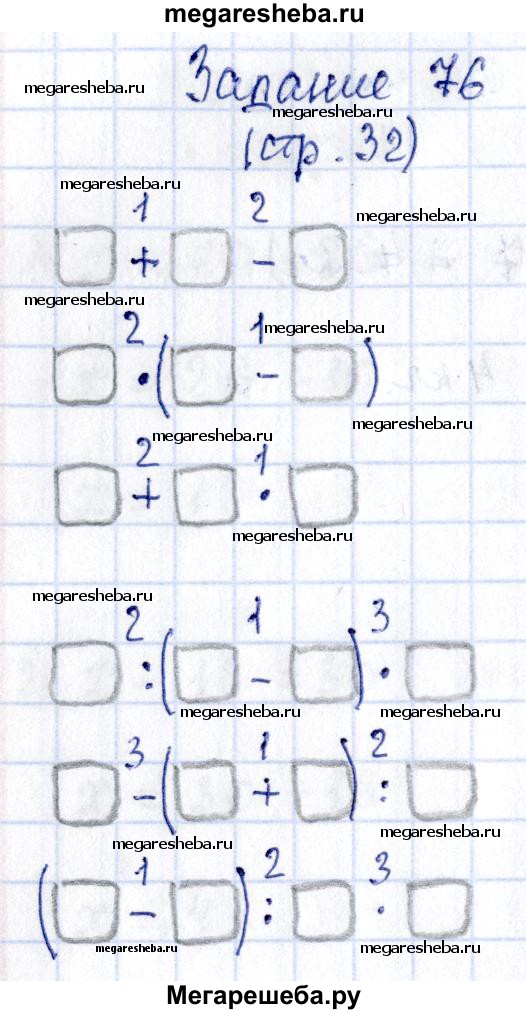 megaresheba.ru
Задание 76
megaresheba.ru
megaresheba.ru
(стр. 32)
megaresheba.ru
1 2
megaresheba.ru
□ + □ - □
megaresheba.ru
2 1
megaresheba.ru
□ · (□ - □)
megaresheba.ru
megaresheba.ru
2 1
□ + □ · □
megaresheba.ru
megaresheba.ru
2 1 3
□ : (□ - □) · □
megaresheba.ru megaresheba.ru
3 1 2
□ - (□ + □) : □
megaresheba.ru megaresheba.ru
1 2 3
(□ - □) : □ · □
megaresheba.ru megaresheba.ru
Мегарешеба.ру